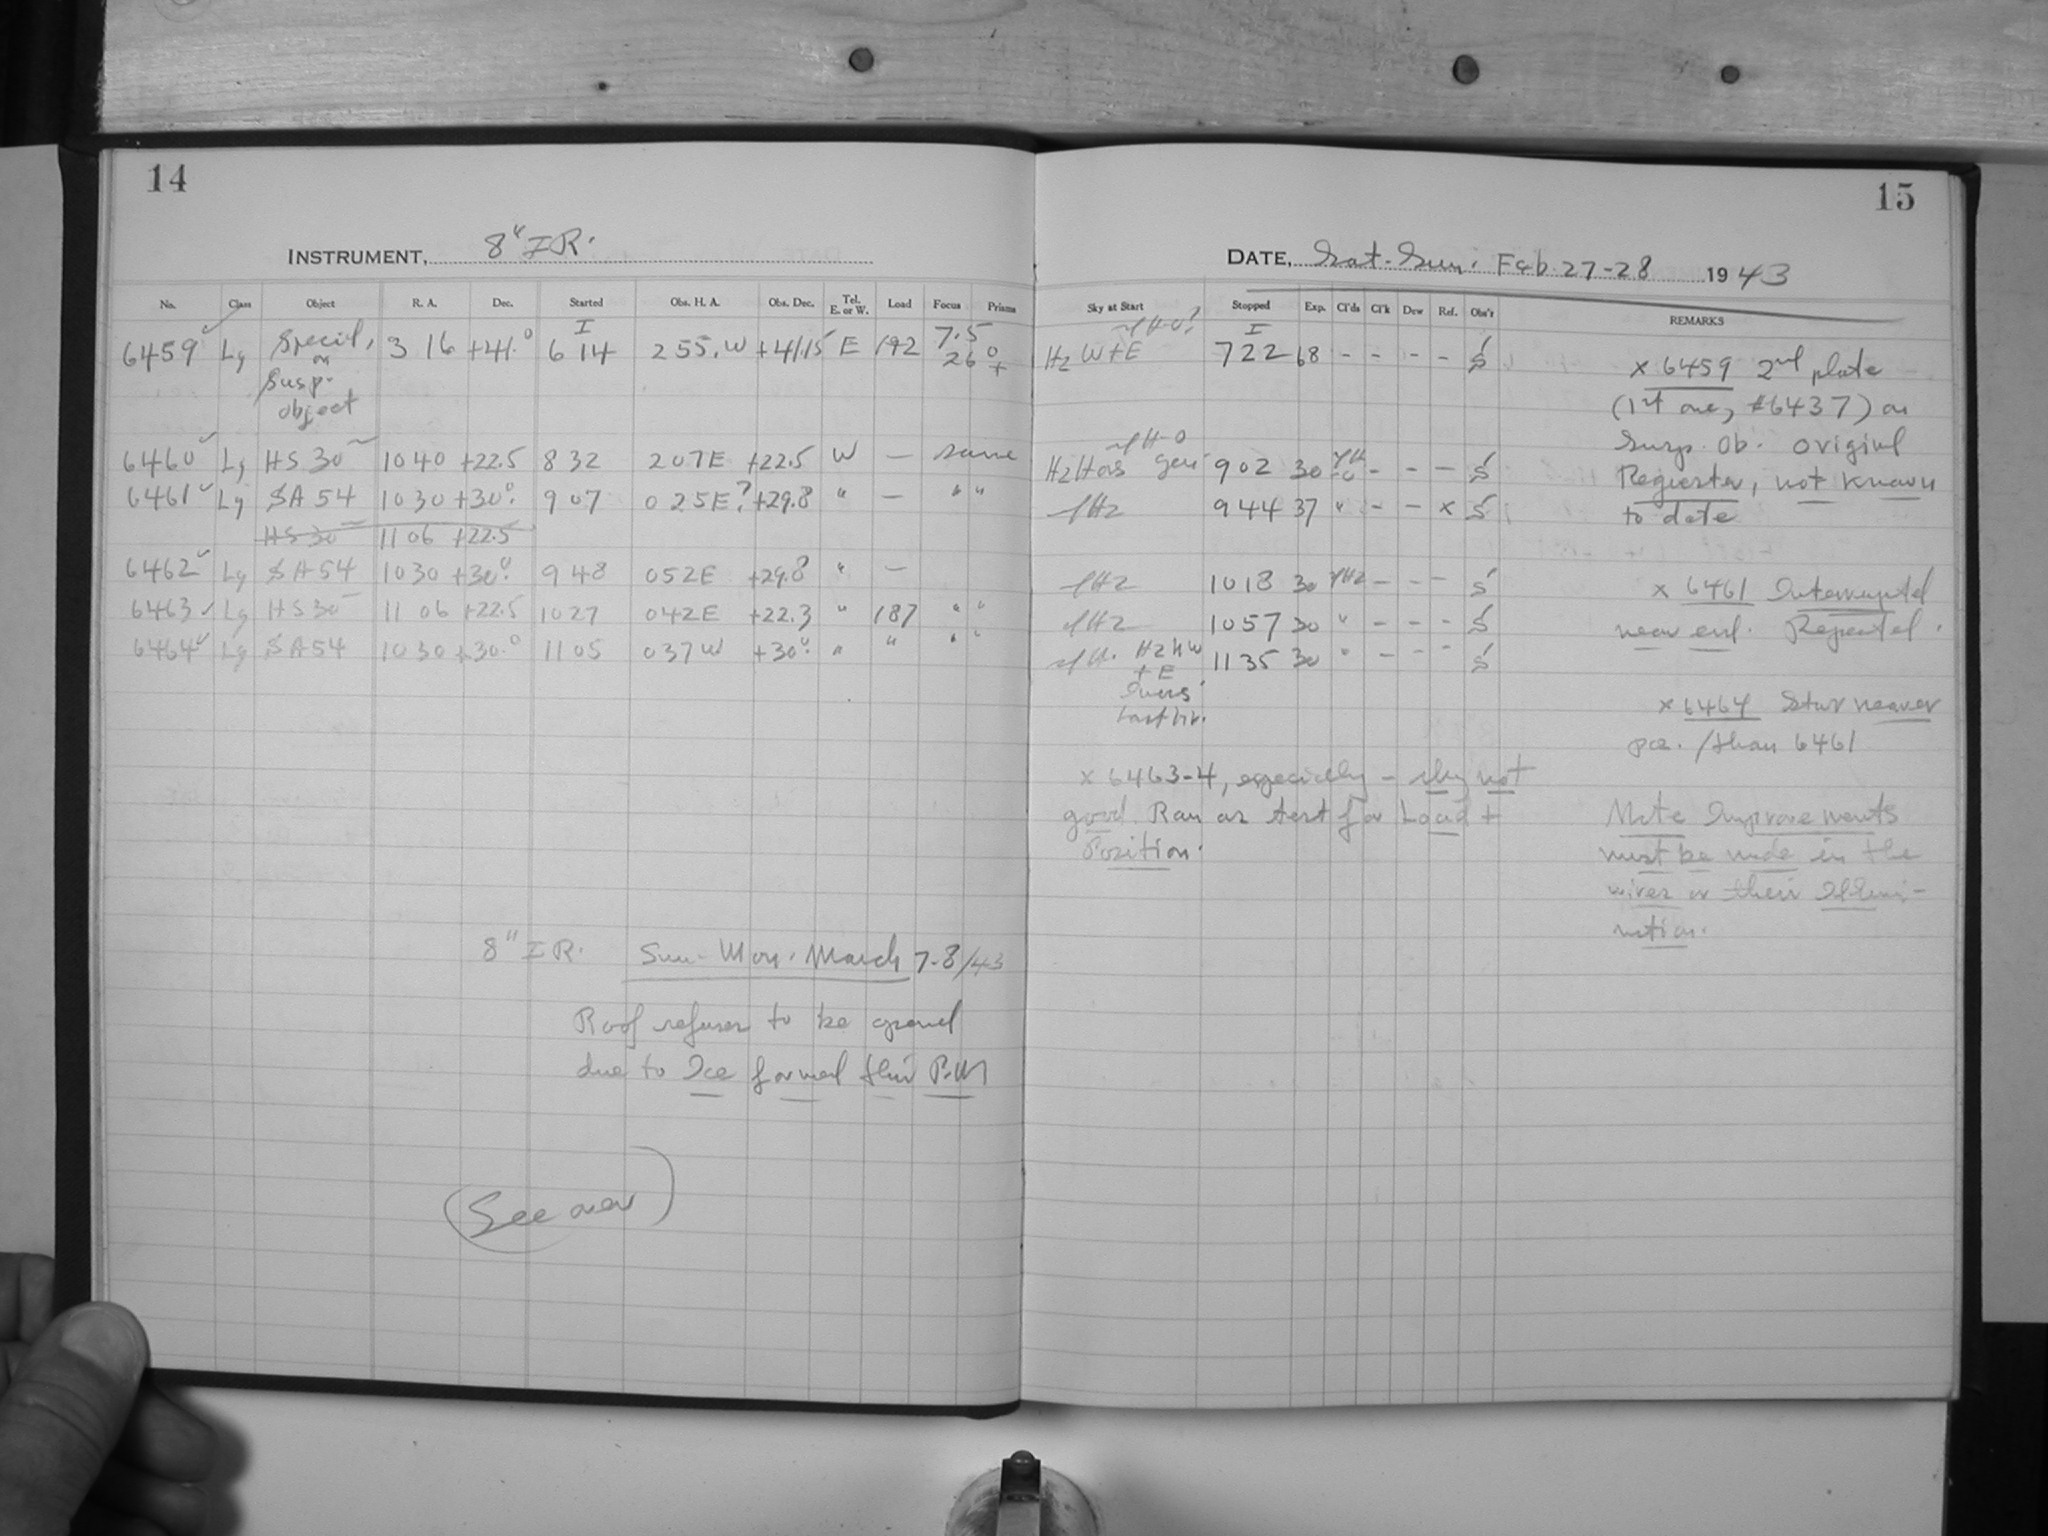 14
INSTRUMENT, 8" IR.
No. Class Object R. A. Dec. Started Obs. H. A. Obs. Dec. Tel. E. or W. Load Focus Prisms
I 7.5
6459 Lg Special, 3 16 +41.° 6 14 255. W +41.15 E 192 26 0
or +
Susp.
object
6460 Lg HS 30 10 40 +22.5 8 32 207E +22.5 W — same
6461 Lg SA 54 10 30 +30° 9 07 025E? +29.8 " — " "
HS 30 11 06 +22.5
6462 Lg SA 54 10 30 +30° 9 48 052E +29.8 " —
6463 Lg HS 30 11 06 +22.5 10 27 042E +22.3 " 187 " "
6464 Lg SA 54 10 30 +30.° 11 05 037W +30° " " " "
8" IR. Sun-Mon. March 7-8/43
Roof refuses to be
due to Ice formed this P.M
(See over)
15
DATE, Sat-Sun. Feb. 27-28 1943
Sky at Start Stopped Exp. Cl'ds Cl'k Dew Ref. Obs'r REMARKS
I
Hz W+E 7 22 68 - - - - S
9 02 30 - - - S
9 44 37 " - - x S
10 18 30 - - - S
10 57 30 " - - - S
Hz W 11 35 30 " - - - S
+ E
last hr.
x 6463-4, especially - sky not
good. Ran as test for Load +
Position.
x 6459 2nd plate
(1st one, #6437) on
Susp. Ob. original
Register, not known
to date
x 6461 Interrupted
near end. Repeated.
x 6464 Star nearer
pos. /than 6461
Note Improvements
must be made in the
wires or their Illumi-
nation.